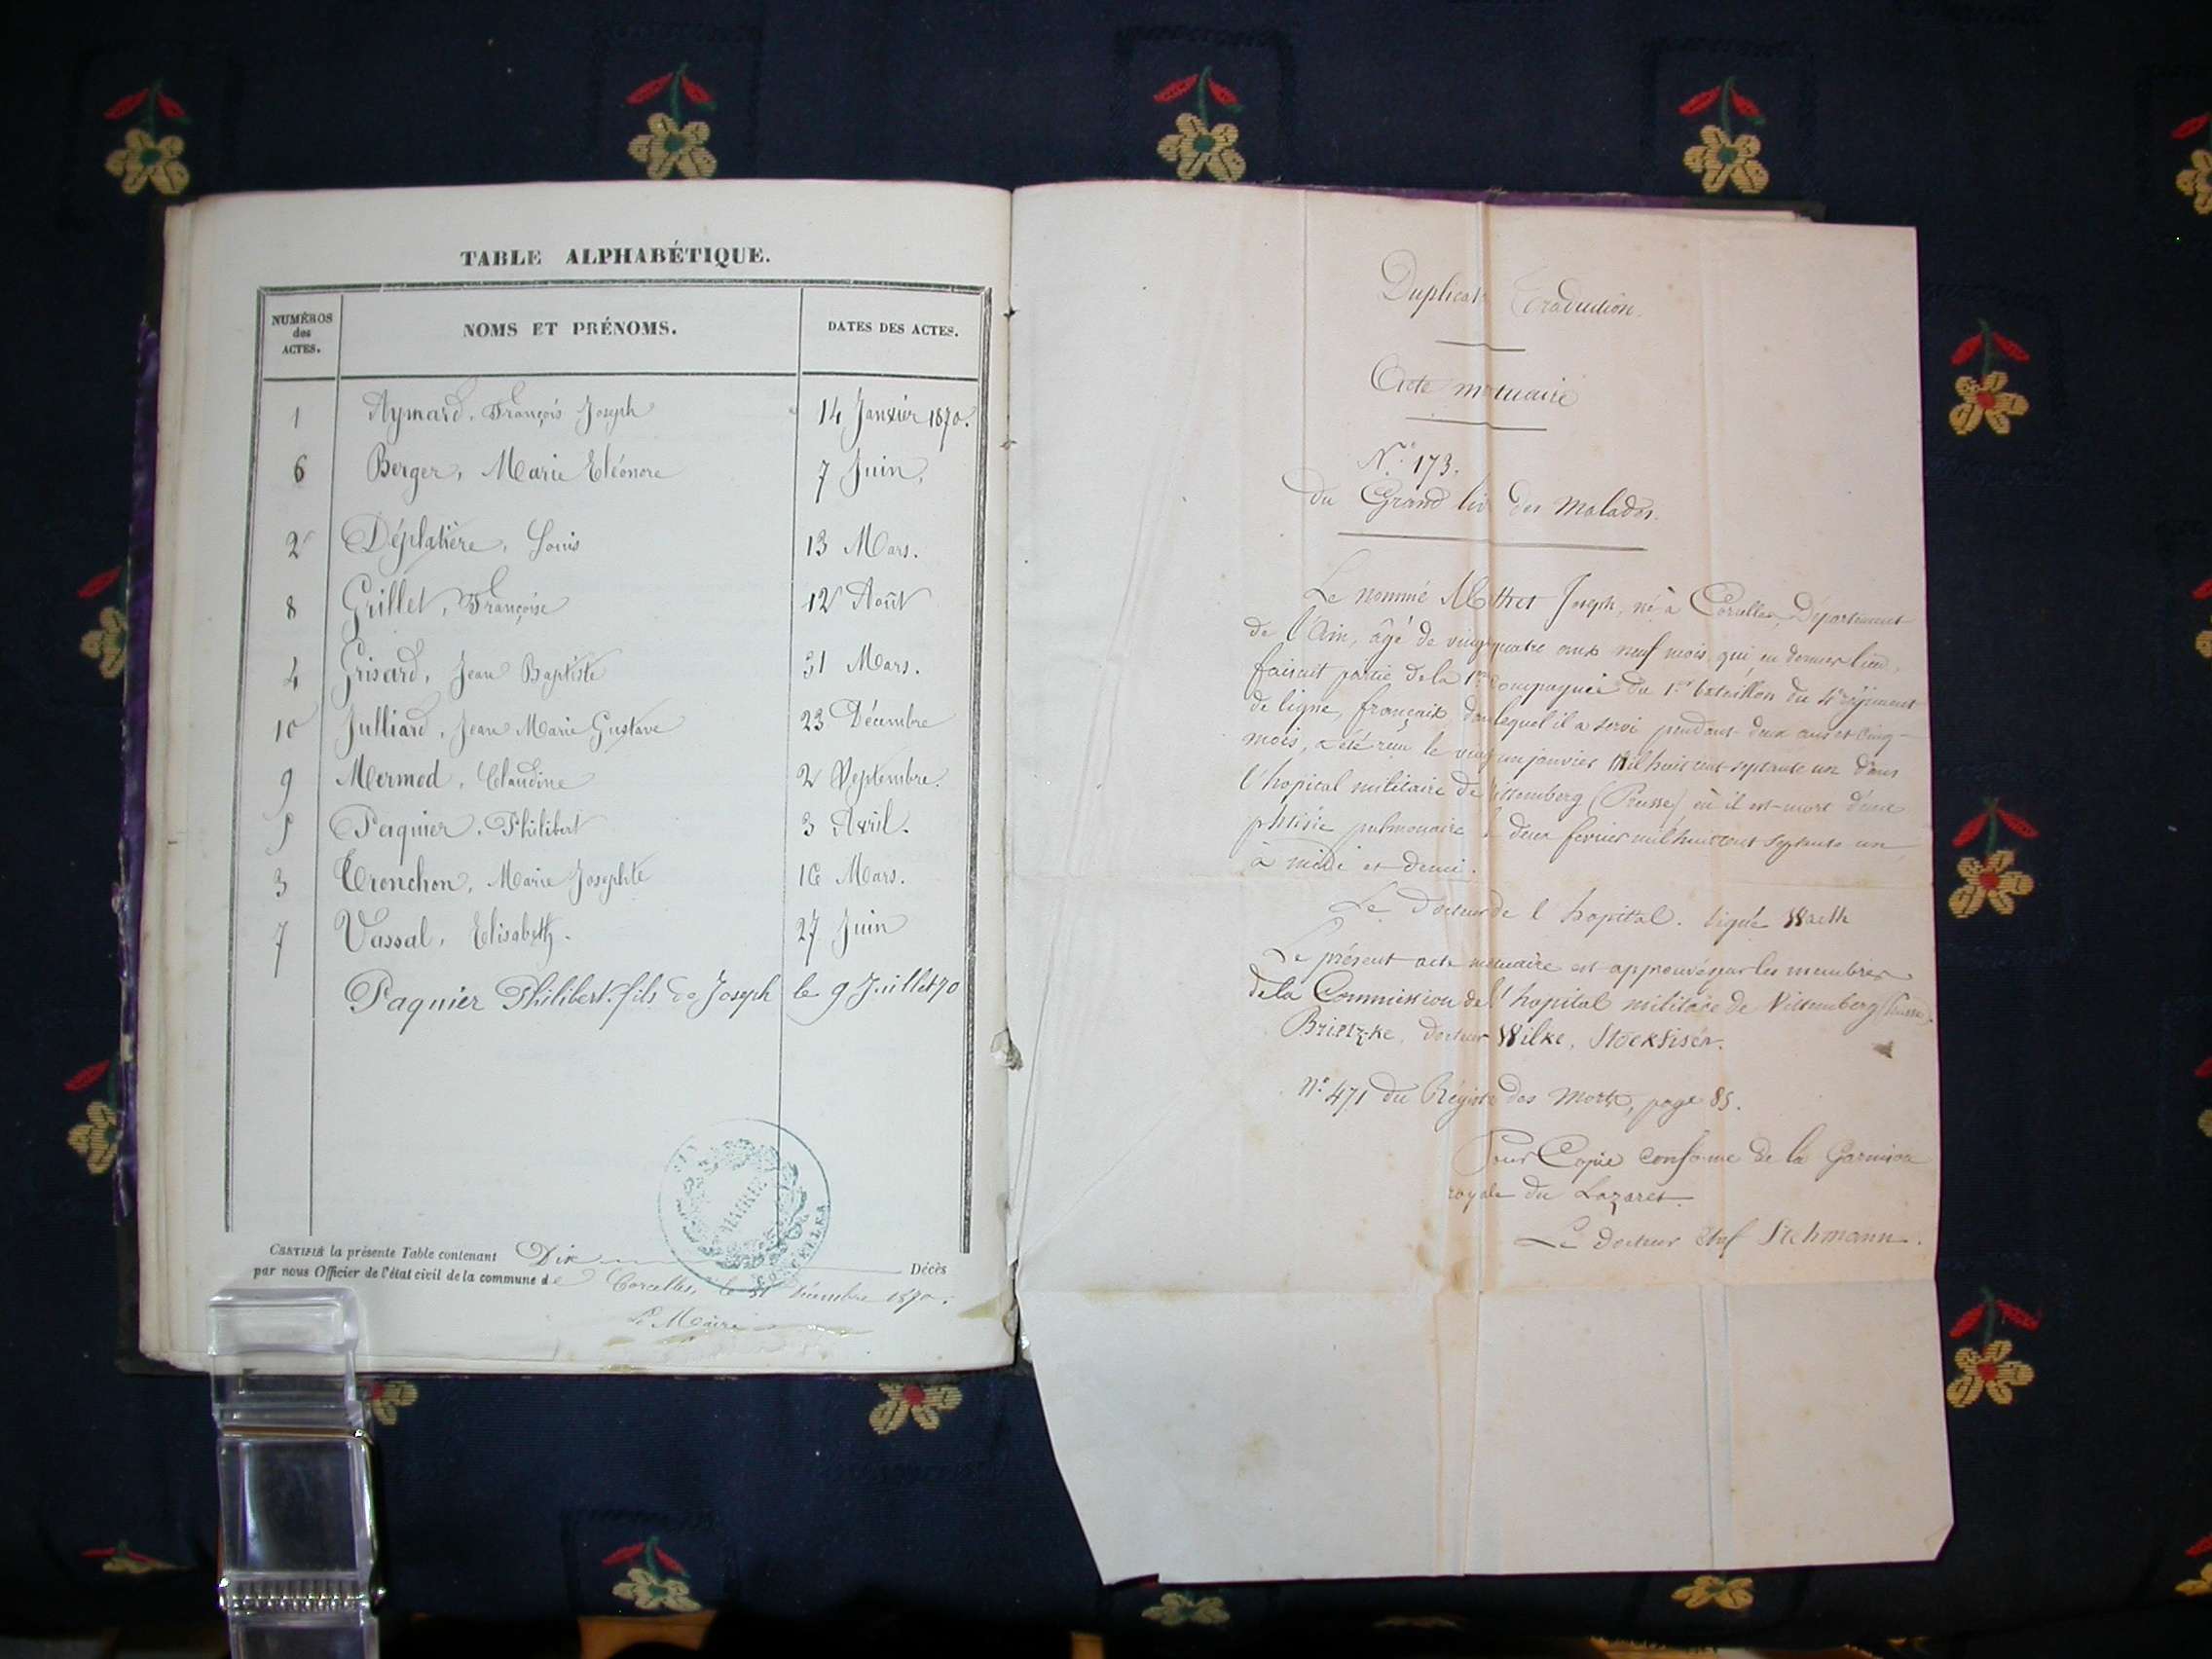 TABLE ALPHABÉTIQUE.
NUMÉROS des ACTES. NOMS ET PRÉNOMS. DATES DES ACTES.
1 Aymard, François Joseph 14 Janvier 1870.
6 Berger, Marie Eléonore 7 Juin,
2 Déplatière, Louis 13 Mars.
8 Grillet, Françoise 12 Août
4 Grisard, Jean Baptiste 31 Mars.
10 Julliard, Jean Marie Gustave 23 Décembre
9 Mermod, Claudine 2 Septembre.
5 Paquier, Philibert 3 Avril.
3 Tronchon, Marie Josephte 16 Mars.
7 Vassal, Elisabeth. 27 Juin
Paquier Philibert fils de Joseph le 9 Juillet 70
CERTIFIÉ la présente Table contenant Dix Décès
par nous Officier de l'état civil de la commune de Corcelles, le 31 Décembre 1870.
Le Maire
MAIRIE
CORCELLES
Duplicata Traduction.
Acte mortuaire
N.° 173.
du Grand livre des Malades.
Le nommé Joseph, né à Corcelles, Département
de l'Ain, âgé de vingt quatre ans neuf mois, qui en dernier lieu,
faisait partie de la 1re compagnie du 1er bataillon du 4e régiment
de ligne, français dans lequel il a servi pendant deux ans et cinq
mois, a été reçu le vingt un janvier mil huit cent septante un dans
l'hopital militaire de Vittemberg (Prusse) où il est mort d'une
phtisie pulmonaire le deux février mil huit cent septante un
à midi et demi.
Le Docteur de l'hopital. Signé
Le présent acte mortuaire est approuvé par les membres
de la Commission de l'hopital militaire de Vittemberg (Prusse).
docteur Wilke,
N.° 471 du Régistre des Morts, page 85.
Pour Copie conforme de la Garnison
royale du Lazaret.
Le Docteur Stehmann.